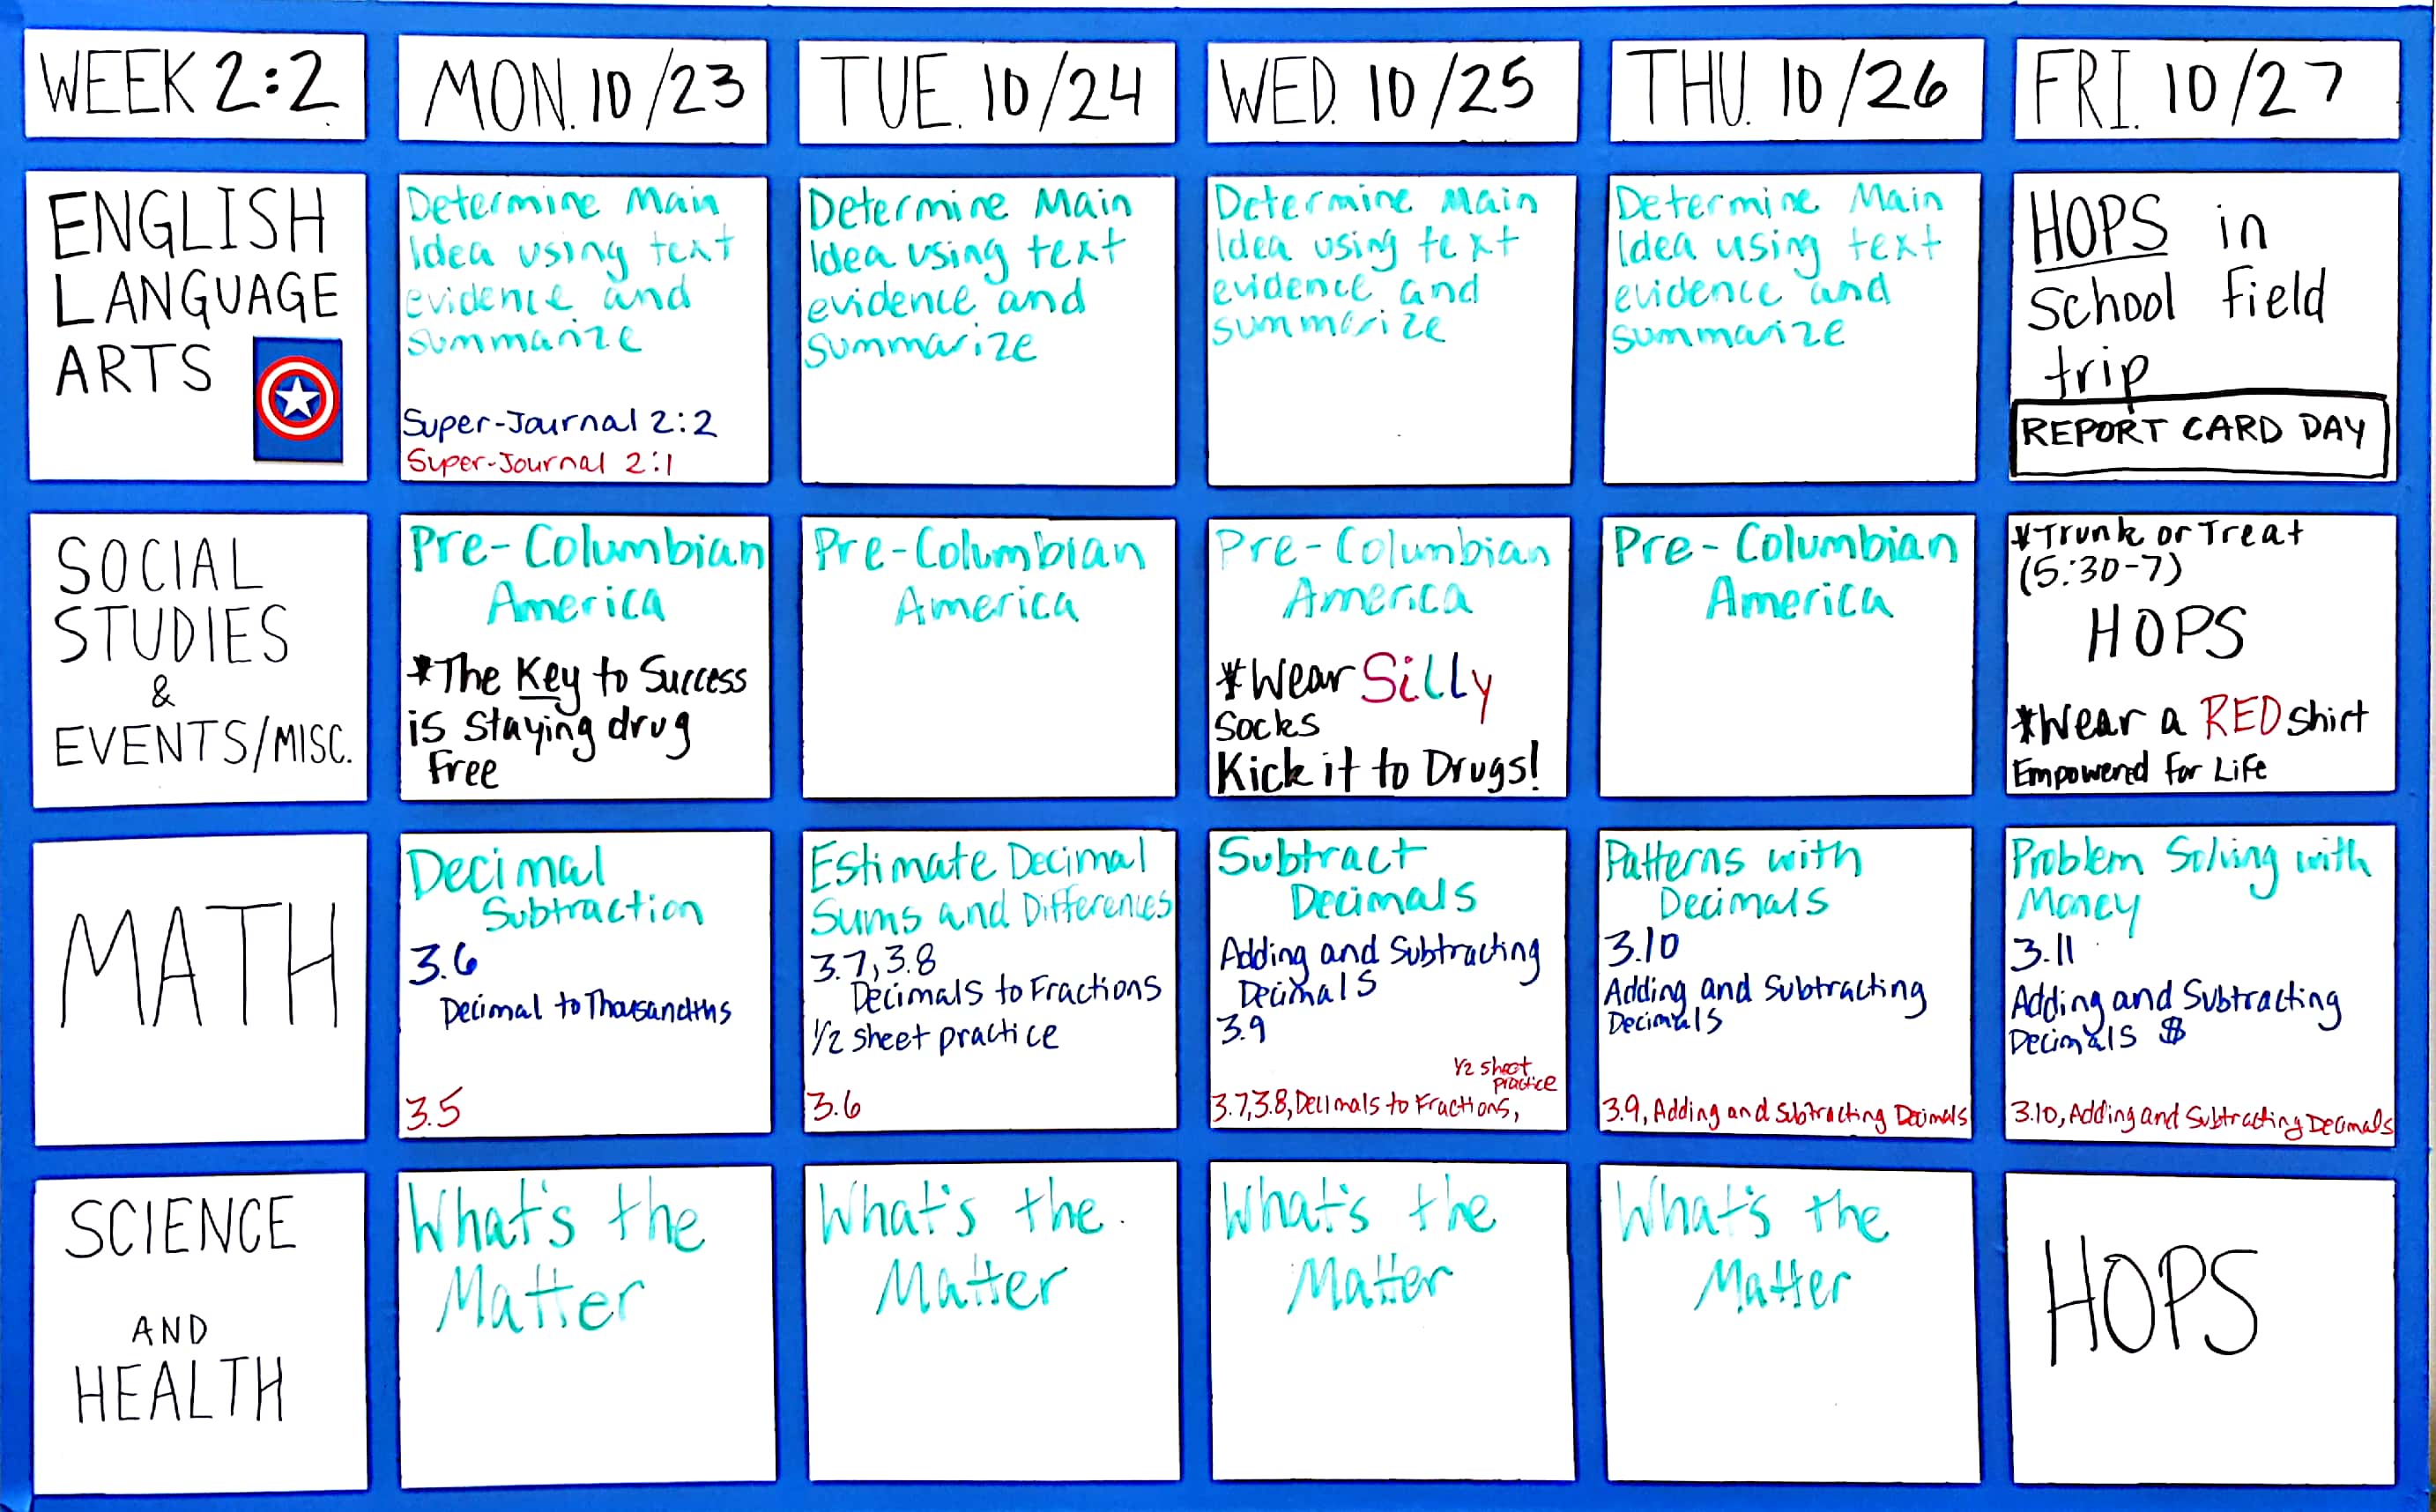 WEEK 2:2
MON. 10/23
TUE. 10/24
WED. 10/25
THU. 10/26
FRI. 10/27
ENGLISH
LANGUAGE
ARTS
Determine Main
Idea using text
evidence and
summarize
Super-Journal 2:2
Super-Journal 2:1
Determine Main
Idea using text
evidence and
summarize
Determine Main
Idea using text
evidence and
summarize
Determine Main
Idea using text
evidence and
summarize
HOPS in
School Field
trip
REPORT CARD DAY
SOCIAL
STUDIES
&
EVENTS/MISC.
Pre-Columbian
America
*The Key to Success
is staying drug
Free
Pre-Columbian
America
Pre-Columbian
America
*Wear Silly
Socks
Kick it to Drugs!
Pre-Columbian
America
*Trunk or Treat
(5:30-7)
HOPS
*Wear a RED shirt
Empowered for Life
MATH
Decimal
Subtraction
3.6
Decimal to Thousandths
3.5
Estimate Decimal
Sums and Differences
3.7, 3.8
Decimals to Fractions
1/2 sheet practice
3.6
Subtract
Decimals
Adding and Subtracting
Decimals
3.9
1/2 sheet
practice
3.7, 3.8, Decimals to Fractions,
Patterns with
Decimals
3.10
Adding and Subtracting
Decimals
3.9, Adding and Subtracting Decimals
Problem Solving with
Money
3.11
Adding and Subtracting
Decimals $
3.10, Adding and Subtracting Decimals
SCIENCE
AND
HEALTH
What's the
Matter
What's the
Matter
What's the
Matter
What's the
Matter
HOPS